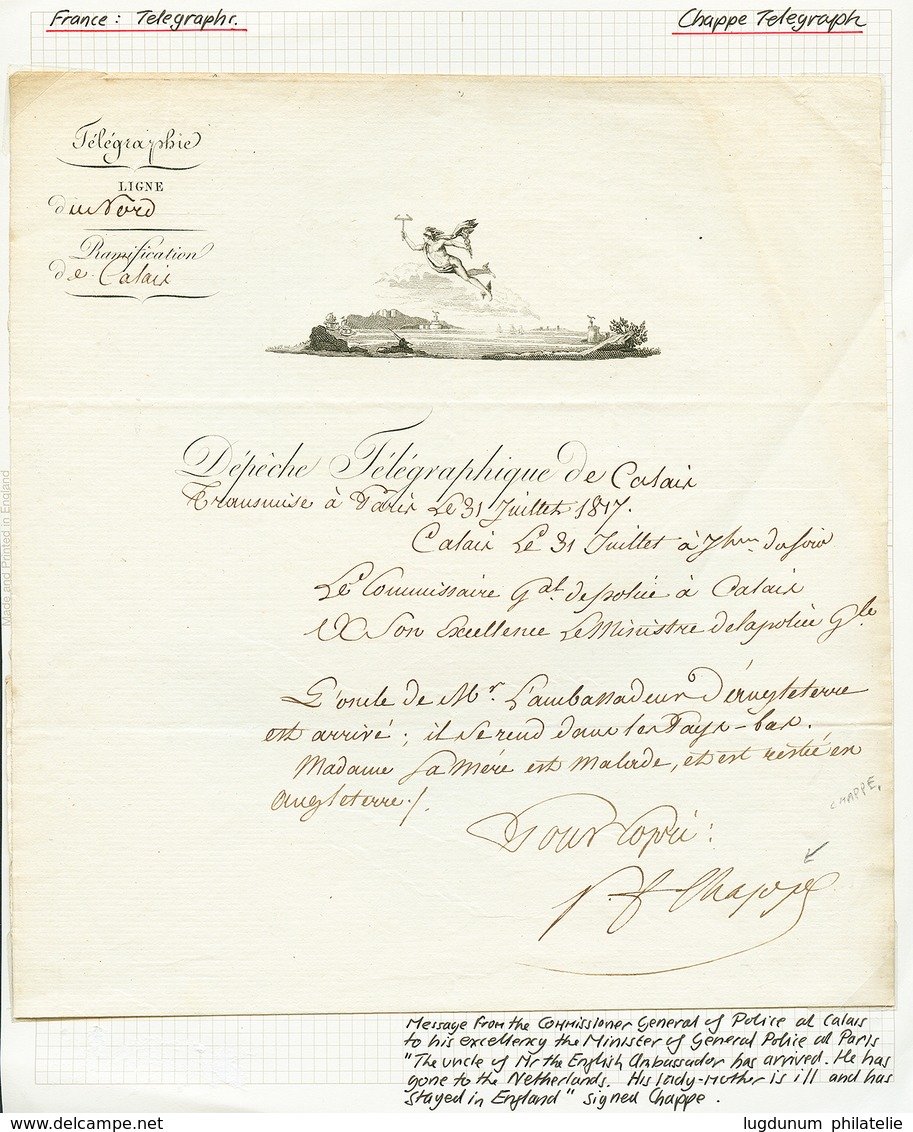 France: Telegraphr.
Chappe Telegraph
Télégraphie
LIGNE
du Nord
Ramification
de Calais
Dépêche Télégraphique de Calais
Transmise à Paris Le 31 Juillet 1817.
Calais Le 31 Juillet à 7 h du soir
Le Commissaire Gal de police à Calais
A Son Excellence Le Ministre de la police Gle
L'oncle de Mr. L'ambassadeur D'angleterre
est arrivé; il se rend dans les Pays-bas.
Madame Sa Mère est Malade, et est restée en
Angleterre./.
Pour Copie:
Chappe
CHAPPE.
Made and Printed in England
Message from the Commissioner General of Police at Calais
to his excellency the Minister of General Police at Paris
"The uncle of Mr the English Ambassador has arrived. He has
gone to the Netherlands. His lady-mother is ill and has
stayed in England" signed Chappe.
lugdunum philatelie